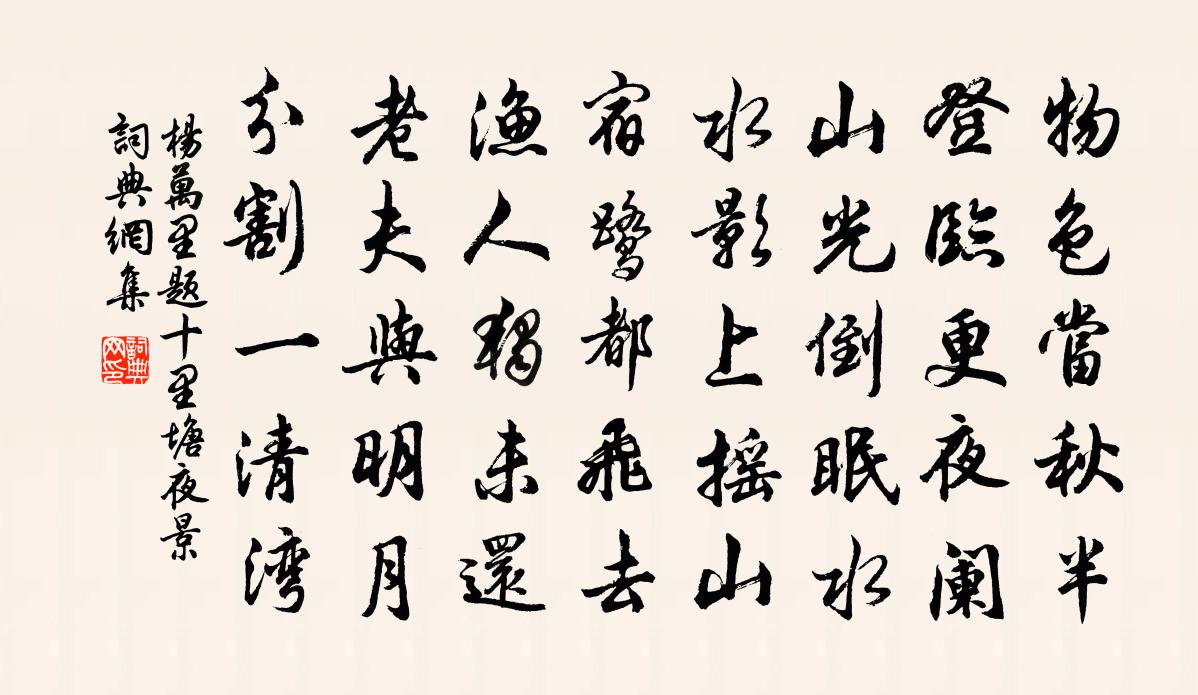 物色當秋半
登臨更夜闌
山光倒眠水
水影上摇山
宿鹭都飛去
漁人獨未還
老夫與明月
分割一清湾
楊萬里題十里塘夜景
詞典網集
詞典网印